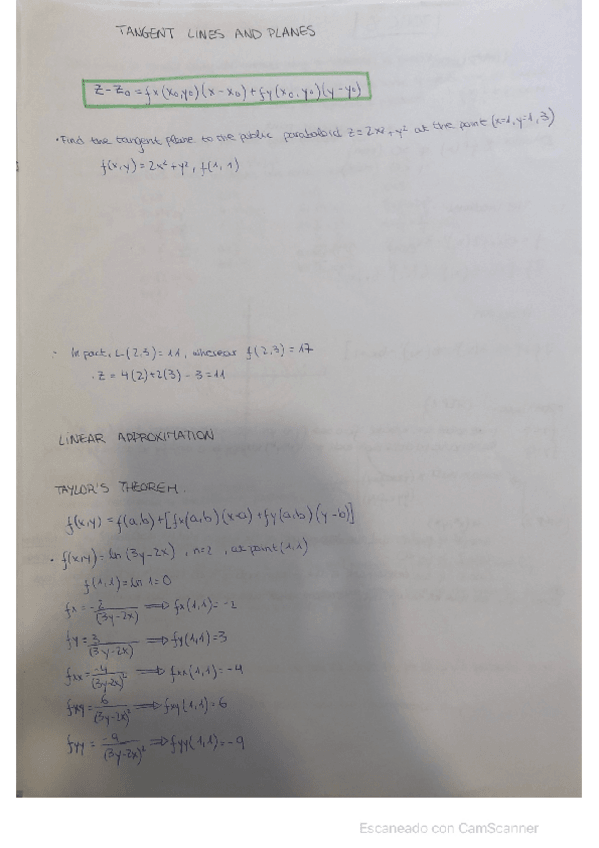 TANGENT LINES AND PLANES
z-z₀ = fx(x₀,y₀)(x-x₀)+fy(x₀,y₀)(y-y₀)
• Find the tangent plane to the public paraboloid z=2x²+y² at the point (x=1,y=1,3)
f(x,y)=2x²+y², f(1,1)
· In part, L(2,3)=11, whereas f(2,3)=17
. z = 4(2)+2(3)-3=11
LINEAR APPROXIMATION
TAYLOR'S THEOREM.
f(x,y)=f(a,b)+[fx(a,b)(x-a)+fy(a,b)(y-b)]
• f(x,y)=ln(3y-2x), n=2, at point (1,1)
f(1,1)=ln 1=0
fx = -2/(3y-2x) ⟹ fx(1,1)=-2
fy = 3/(3y-2x) ⟹ fy(1,1)=3
fxx = -4/(3y-2x)² ⟹ fxx(1,1)=-4
fxy = 6/(3y-2x)² ⟹ fxy(1,1)=6
fyy = -9/(3y-2x)² ⟹ fyy(1,1)=-9
Escaneado con CamScanner